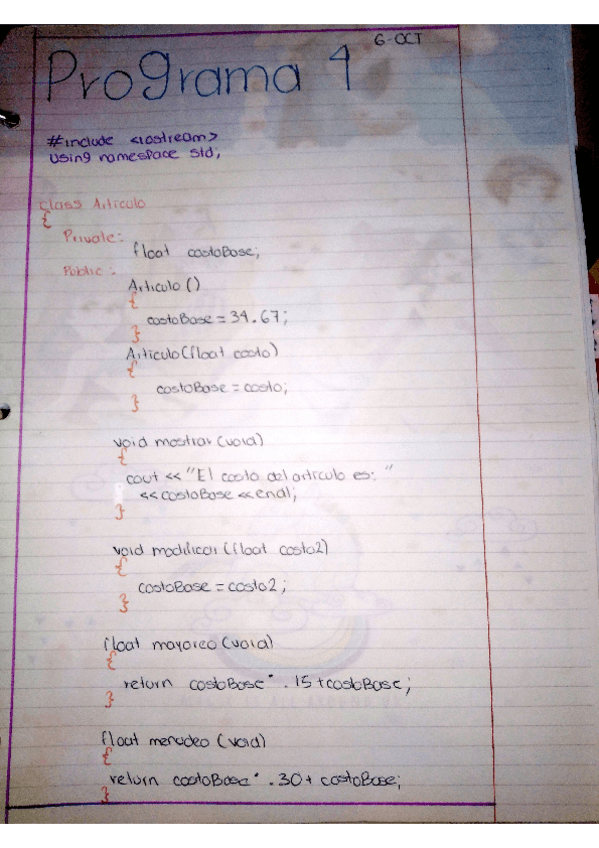 6-OCT
Programa 4
#include <iostream>
using namespace std;
class Articulo
{
Private:
float costoBase;
Public:
Articulo ()
{
costoBase = 34.67;
}
Articulo (float costo)
{
costoBase = costo;
}
void mostrar (void)
{
cout << "El costo del articulo es: "
<< costoBase << endl;
}
void modificar (float costo2)
{
costoBase = costo2;
}
float mayoreo (void)
{
return costoBase * .15 + costoBase;
}
float menudeo (void)
{
return costoBase * .30 + costoBase;
}